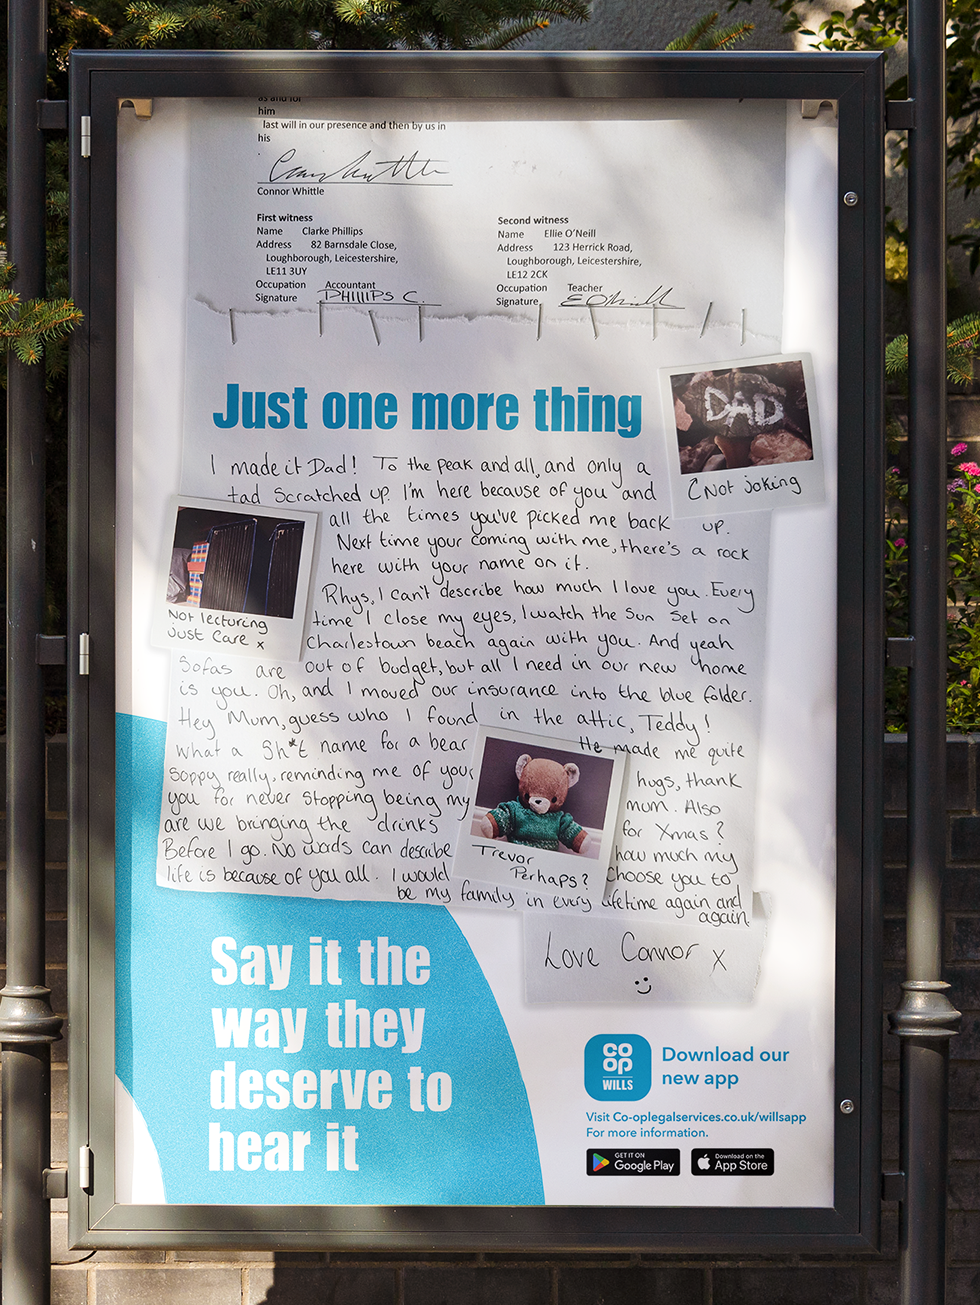 as and for
him
last will in our presence and then by us in
his
Connor Whittle
First witness
Name Clarke Phillips
Address 82 Barnsdale Close,
Loughborough, Leicestershire,
LE11 3UY
Occupation Accountant
Signature PHIllIPS C.
Second witness
Name Ellie O'Neill
Address 123 Herrick Road,
Loughborough, Leicestershire,
LE12 2CK
Occupation Teacher
Signature EONeill
Just one more thing
DAD
Not joking
I made it Dad! To the peak and all, and only a
tad scratched up. I'm here because of you and
all the times you've picked me back up.
Next time your coming with me, there's a rock
here with your name on it.
Not lecturing
Just Care x
Rhys, I can't describe how much I love you. Every
time I close my eyes, I watch the sun set on
Charlestown beach again with you. And yeah
Sofas are out of budget, but all I need in our new home
is you. Oh, and I moved our insurance into the blue folder.
Hey Mum, guess who I found in the attic, Teddy!
What a Sh*t name for a bear He made me quite
soppy really, reminding me of your hugs, thank
you for never stopping being my mum. Also
are we bringing the drinks for Xmas?
Before I go. No words can describe how much my
life is because of you all. I would choose you to
be my family in every lifetime again and
again.
Trevor
Perhaps?
Love Connor x
Say it the
way they
deserve to
hear it
CO
OP
WILLS
Download our
new app
Visit Co-oplegalservices.co.uk/willsapp
For more information.
GET IT ON
Google Play
Download on the
App Store